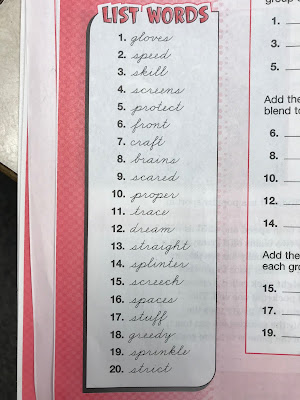 LIST WORDS
1. gloves
2. speed
3. skill
4. screens
5. protect
6. front
7. craft
8. brains
9. scared
10. proper
11. trace
12. dream
13. straight
14. splinter
15. screech
16. spaces
17. stuff
18. greedy
19. sprinkle
20. strict
1.
3.
5.
Add the
blend to
6.
8.
10.
12.
14.
Add the
each gro
15.
17.
19.